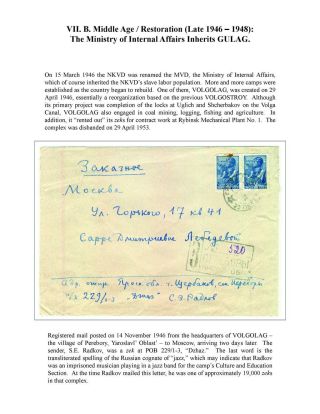 VII. B. Middle Age / Restoration (Late 1946 – 1948):
The Ministry of Internal Affairs Inherits GULAG.
On 15 March 1946 the NKVD was renamed the MVD, the Ministry of Internal Affairs,
which of course inherited the NKVD's slave labor population. More and more camps were
established as the country began to rebuild. One of them, VOLGOLAG, was created on 29
April 1946, essentially a reorganization based on the previous VOLGOSTROY. Although
its primary project was completion of the locks at Uglich and Shcherbakov on the Volga
Canal, VOLGOLAG also engaged in coal mining, logging, fishing and agriculture. In
addition, it "rented out" its zeks for contract work at Rybinsk Mechanical Plant No. 1. The
complex was disbanded on 29 April 1953.
Заказное
Москва
Ул. Горького, 17 кв 41
Сарре Дмитриевне Лебедевой
520
г. Щербаков,
229/1-3 С.Э. Радлов
Registered mail posted on 14 November 1946 from the headquarters of VOLGOLAG –
the village of Perebory, Yaroslavl' Oblast' – to Moscow, arriving two days later. The
sender, S.E. Radkov, was a zek at POB 229/1-3, "Dzhaz." The last word is the
transliterated spelling of the Russian cognate of "jazz", which may indicate that Radkov
was an imprisoned musician playing in a jazz band for the camp's Culture and Education
Section. At the time Radkov mailed this letter, he was one of approximately 19,000 zeks
in that complex.